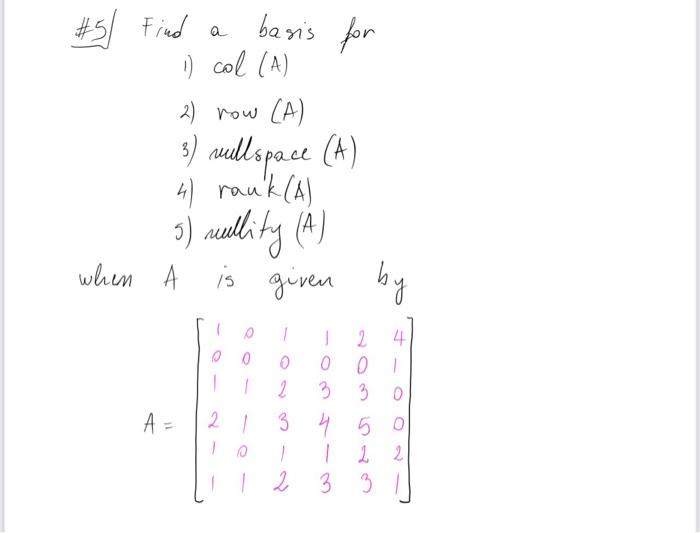 #5/ Find a basis for
1) col (A)
2) row (A)
3) nullspace (A)
4) rank (A)
5) nullity (A)
when A is given by
1 0 1 1 2 4
0 0 0 0 0 1
1 1 2 3 3 0
A = 2 1 3 4 5 0
1 0 1 1 2 2
1 1 2 3 3 1